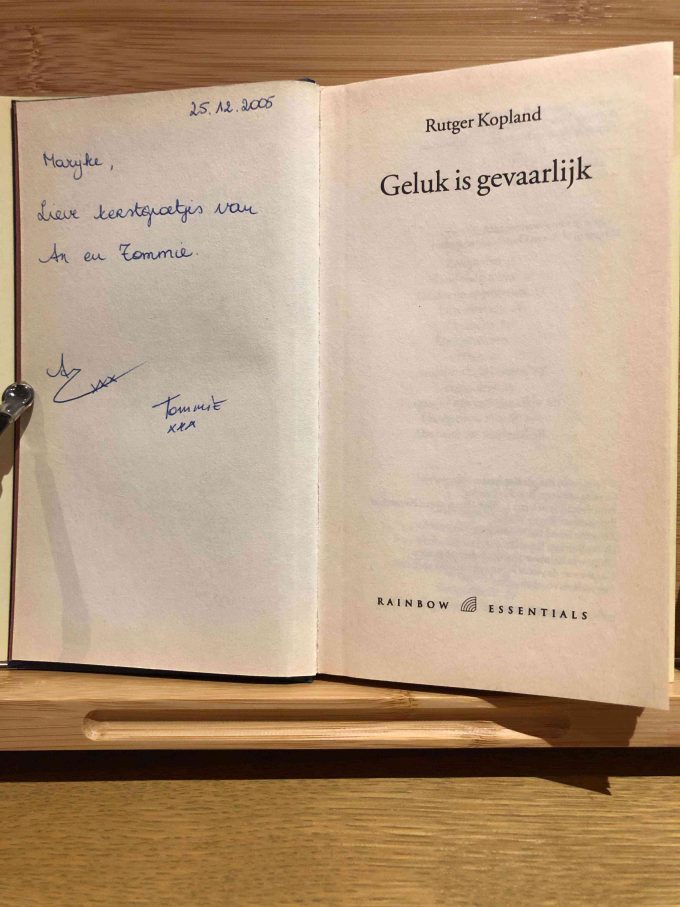 25.12.2005
Maryke,
Lieve kerstgroetjes van
An en Tommie.
An xxx
Tommie
xxx
Rutger Kopland
Geluk is gevaarlijk
RAINBOW ESSENTIALS